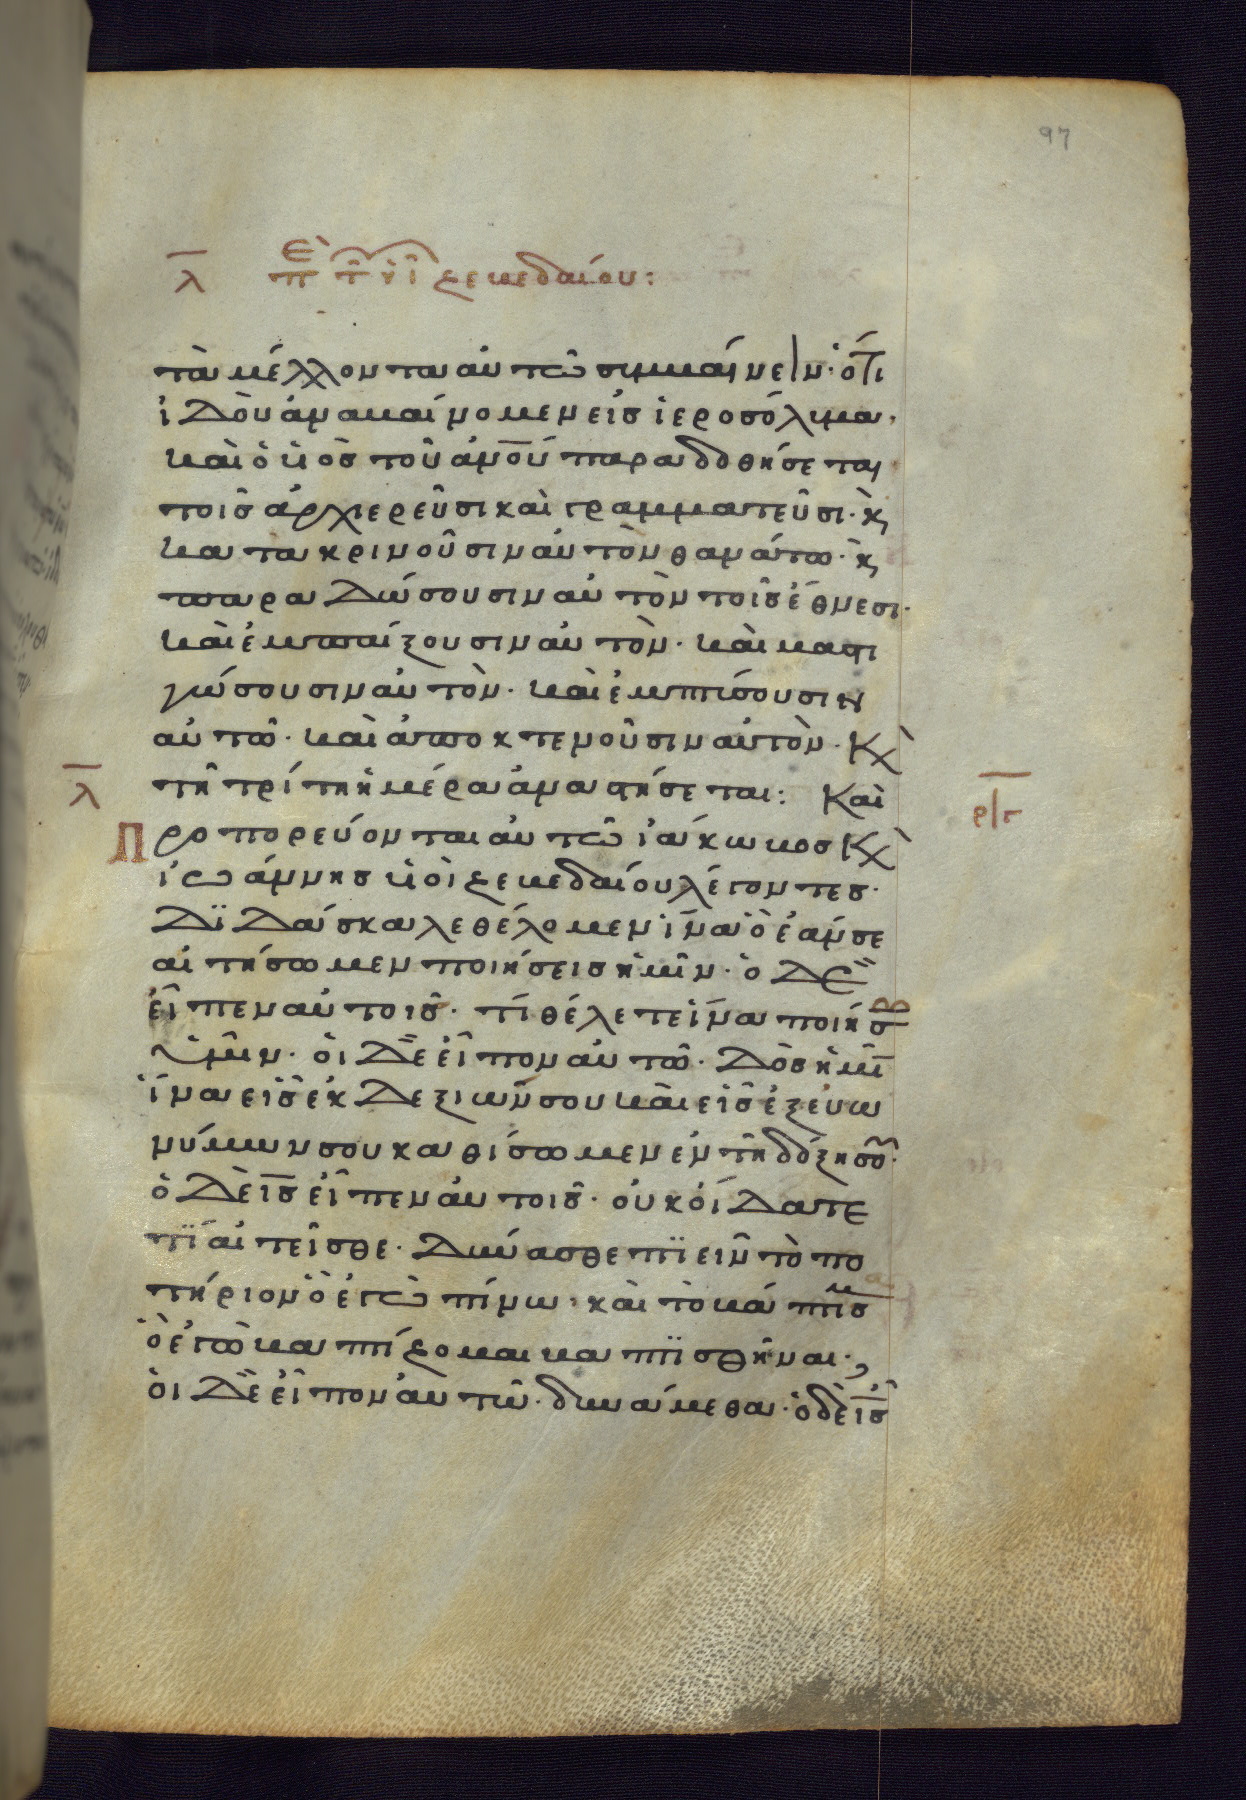 97
λ πε τ υι ζεβεδαίου:
τὰ μέλλοντα αὐτῶ συμβαίνειν· ὅτι
ἰδοὺ ἀναβαίνομεν εἰσ ἱεροσόλυμα·
καὶ ὁ υἱὸσ τοῦ ἀνου παραδοθήσεται
τοῖσ ἀρχιερεῦσι καὶ γραμματεῦσι· κ
κατακρινοῦσιν αὐτὸν θανάτω· κ
παραδώσουσιν αὐτὸν τοῖσ ἔθνεσι·
καὶ ἐμπαίξουσιν αὐτὸν· καὶ μαστι
γώσουσιν αὐτὸν· καὶ ἐμπτύσουσιν
αὐτῶ· καὶ ἀποκτενοῦσιν αὐτὸν· Κ
τῆ τρίτη ἡμέρα ἀναστήσεται: Καὶ
λ
ργ
Προπορεύονται αὐτῶ ἰάκωβοσ Κ
ἰωάννησ υἱοὶ ζεβεδαίου λέγοντεσ·
Διδάσκαλε θέλομεν ἵνα ὃ ἐάν σε
αἰτήσωμεν ποιήσεισ ἡμῖν· ὁ δὲ
εἶπεν αὐτοῖσ· τί θέλετε ἵνα ποιήσ
ὑμῖν· οἱ δὲ εἶπον αὐτῶ· Δὸσ ἡμῖ
ἵνα εἷσ ἐκ δεξιῶν σου καὶ εἷσ ἐξ εὐω
νύμων σου καθίσωμεν ἐν τῆ δόξη σου·
ὁ δὲ ισ εἶπεν αὐτοῖσ· οὐκ οἴδατε
τί αἰτεῖσθε· Δύνασθε πιεῖν τὸ πο
τήριον ὃ ἐγὼ πίνω· καὶ τὸ βάπτισμ
ὃ ἐγὼ βαπτίζομαι βαπτισθῆναι·;
οἱ δὲ εἶπον αὐτῶ· δυνάμεθα· ὁ δὲ ισ